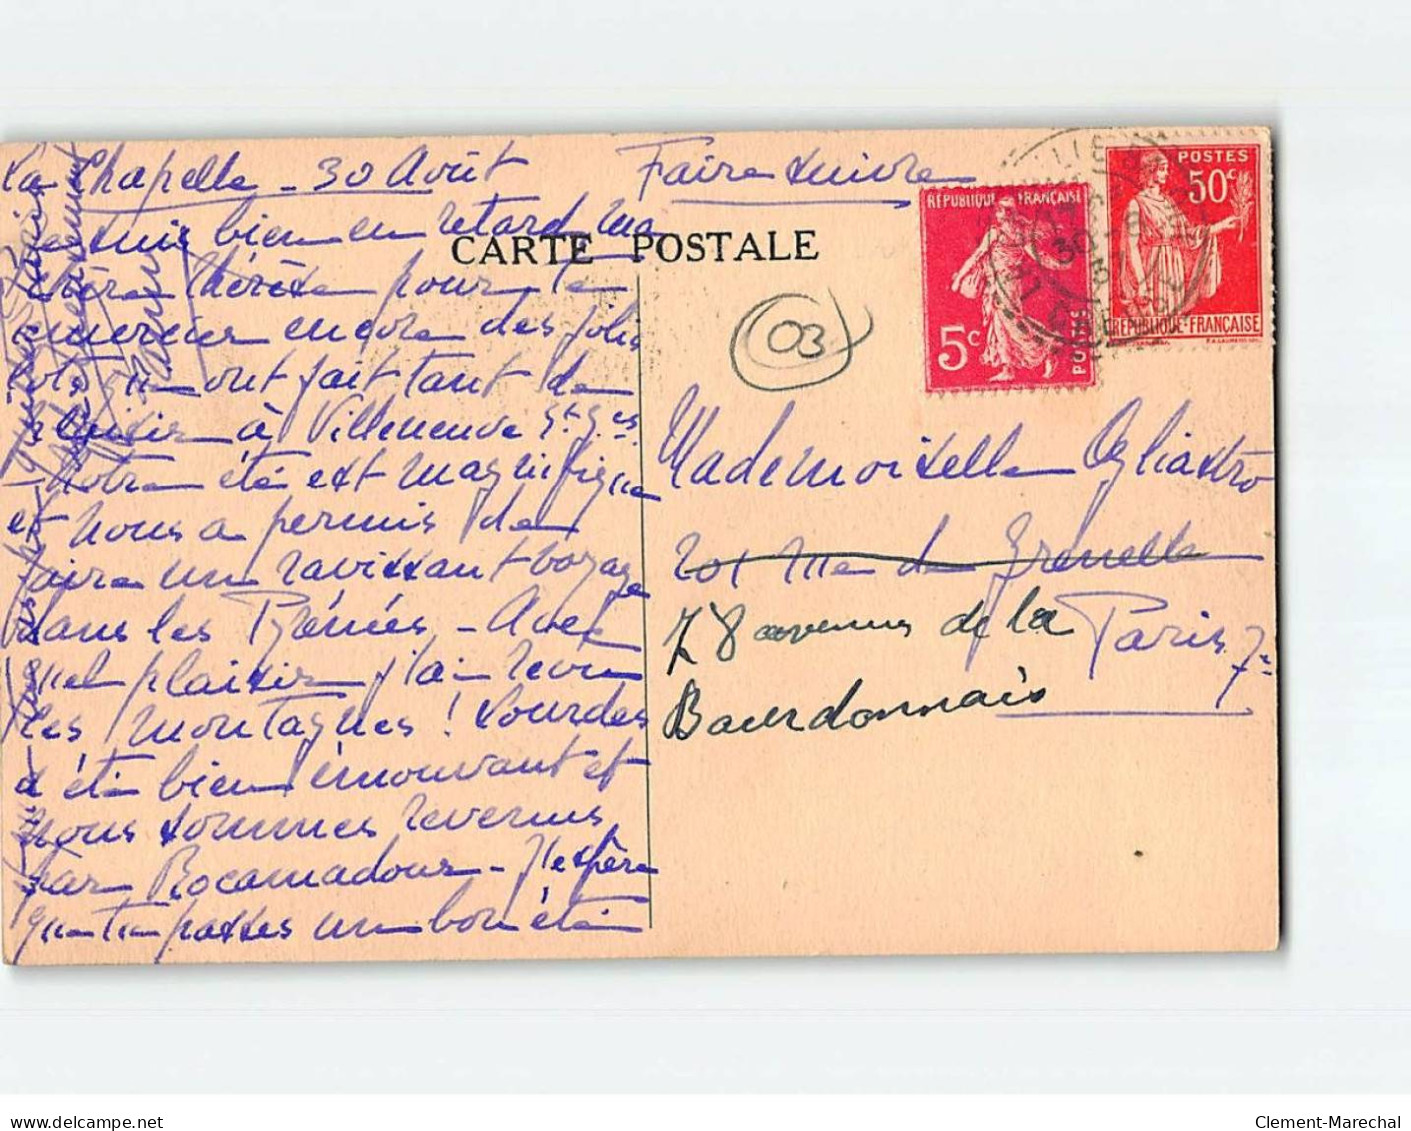 La Chapelle - 30 Août
Faire suivre
suis bien en retard ma
chère Thérèse pour te
remercier encore des jolis
qui m'ont fait tant de
plaisir à Villeneuve St Ges
Notre été est magnifique
et nous a permis de
faire un ravissant voyage
dans les Pyrénées - Avec
quel plaisir j'ai revu
les montagnes ! Lourdes
a été bien émouvant et
nous sommes revenus
par Rocamadour - J'espère
que tu passes un bon été
CARTE POSTALE
03
RÉPUBLIQUE FRANÇAISE
5c
POSTES
POSTES
50c
RÉPUBLIQUE-FRANÇAISE
30-8
Mademoiselle Ogliastro
201 rue de Grenelle
78 avenue de la
Bourdonnais
Paris 7e
www.delcampe.net
Clement-Marechal